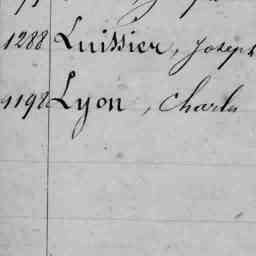 1288 Luissier, Joseph
1198 Lyon, Charles